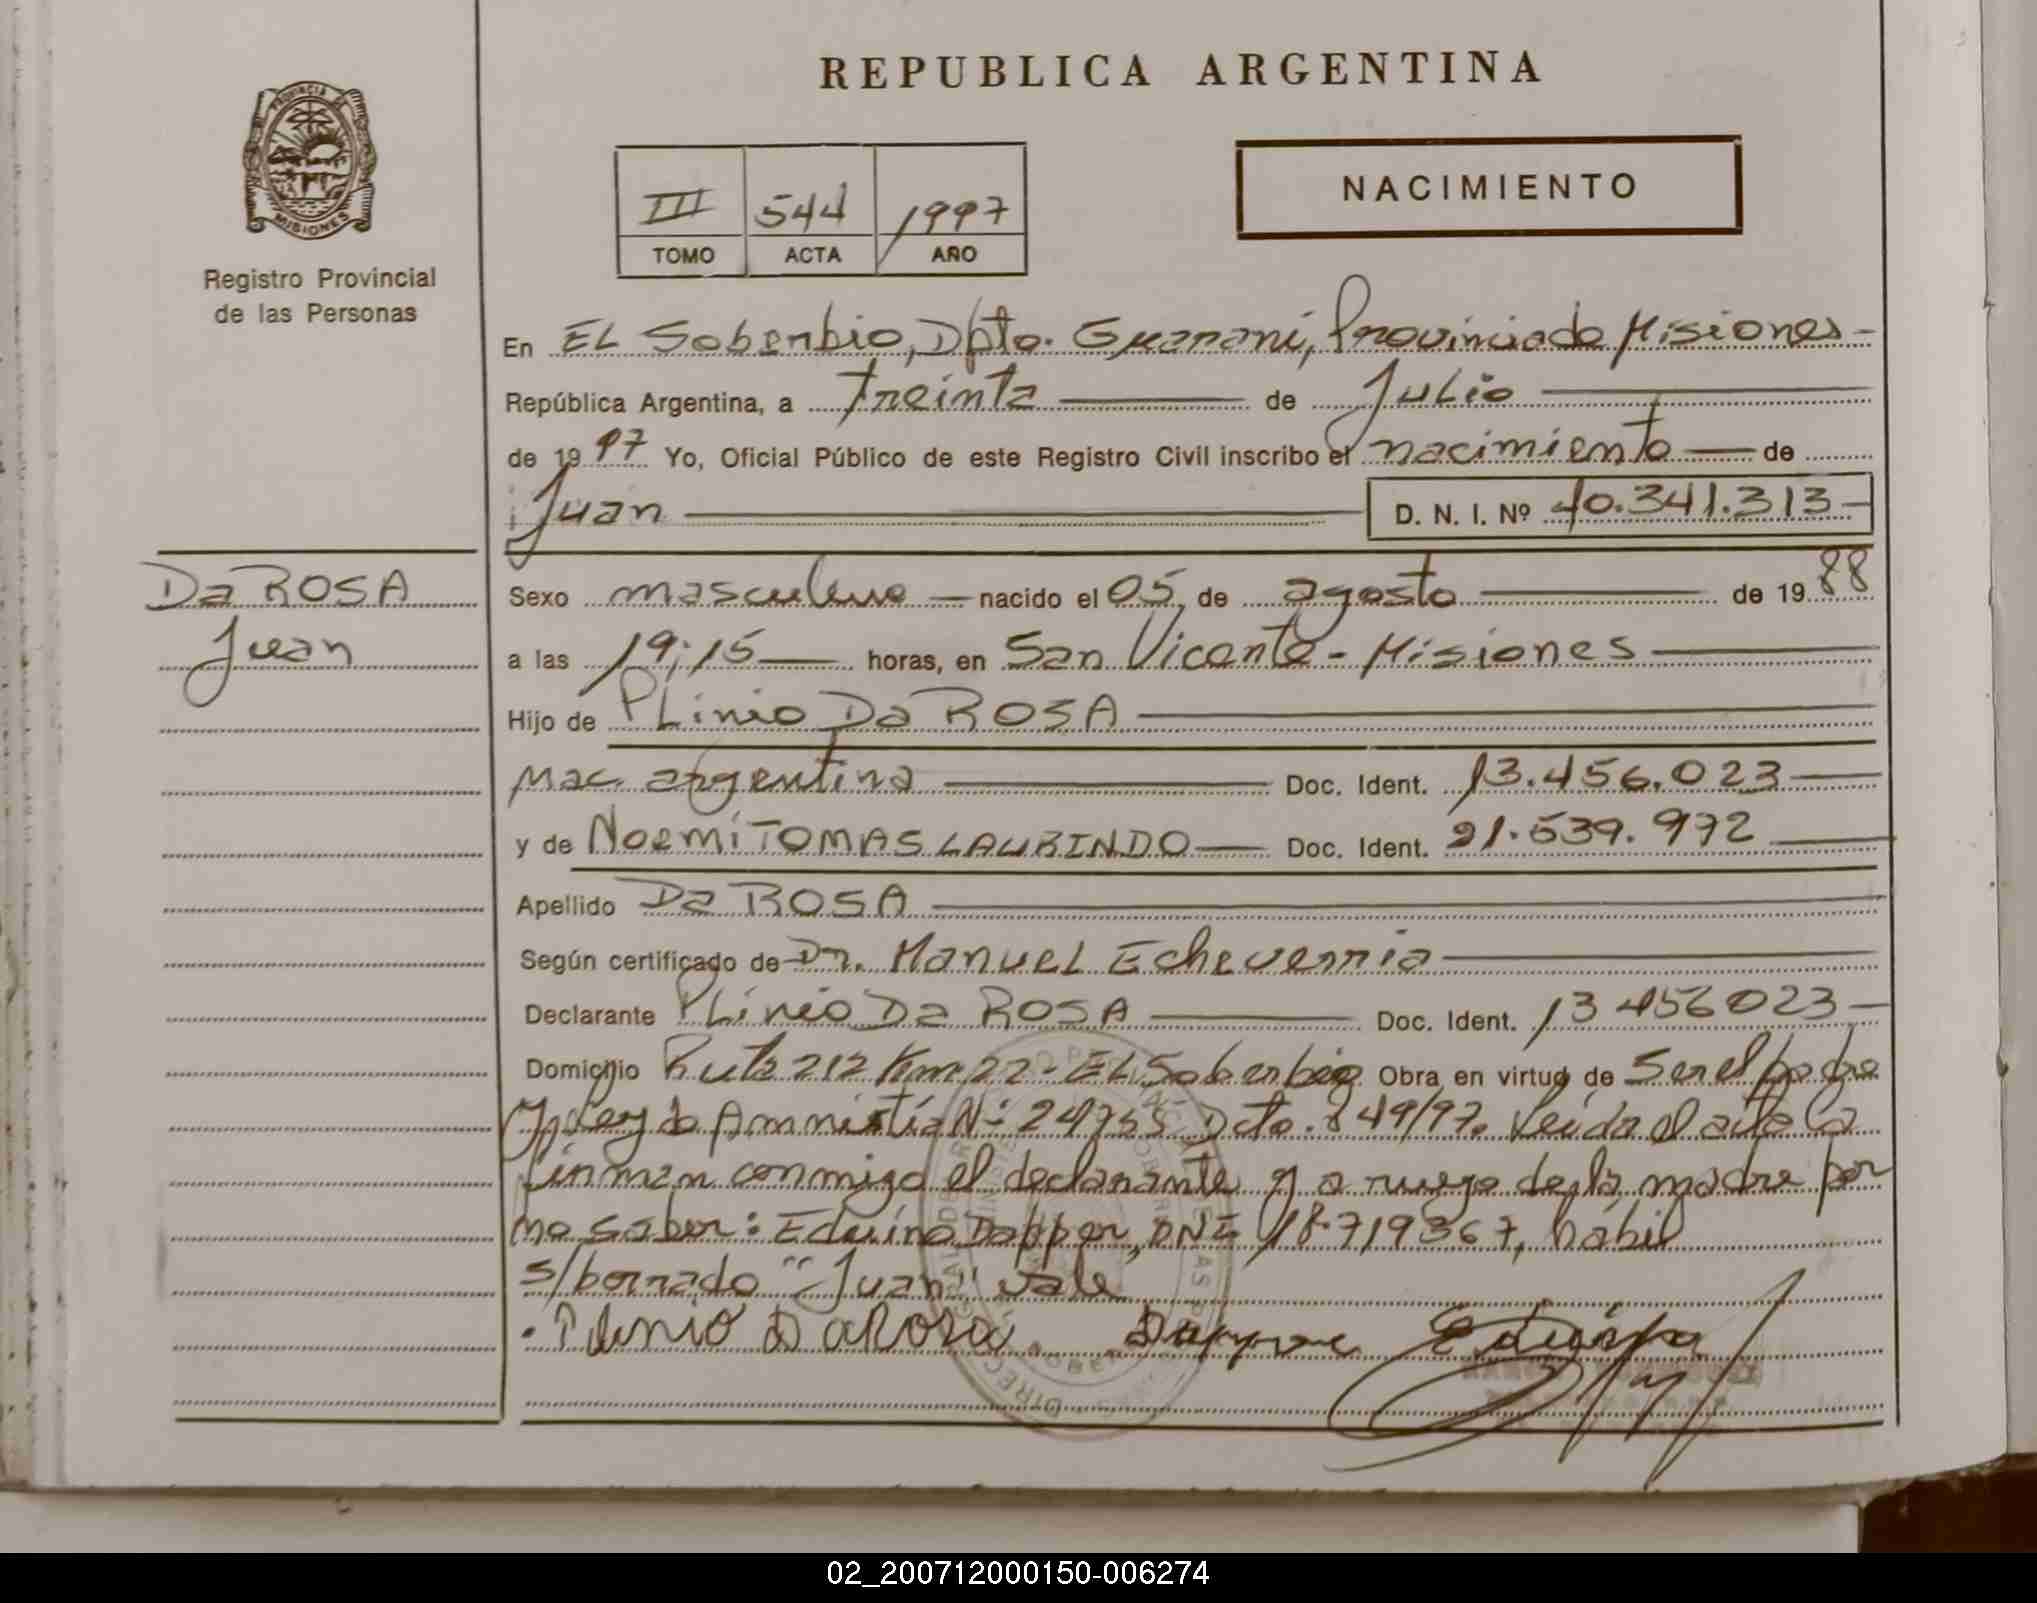 REPUBLICA ARGENTINA
PROVINCIA DE
MISIONES
Registro Provincial
de las Personas
III 544 1997
TOMO ACTA AÑO
NACIMIENTO
En EL Soberbio, Dpto. Guarani, Provincia de Misiones
República Argentina, a treinta de Julio
de 1997 Yo, Oficial Público de este Registro Civil inscribo el nacimiento de
Juan D. N. I. Nº 40.341.313
Da ROSA
Juan
Sexo masculino nacido el 05 de agosto de 1988
a las 19:15 horas, en San Vicente - Misiones
Hijo de PLinio Da ROSA
Nac. argentina Doc. Ident. 13.456.023
y de NOEMI TOMAS LAURINDO Doc. Ident. 21.539.972
Apellido Da ROSA
Según certificado de Dr. MANUEL Echeverria
Declarante PLinio Da ROSA Doc. Ident. 13 456 023
Domicilio Ruta 212 Km 22 - EL Soberbio Obra en virtud de Ser el padre
y Ley de Amnistia Nº 24755 Dcto. 849/97. Leida el acta la
firman conmigo el declarante y a ruego de la madre por
no saber: Eduino Dapper, DNI 18.719367, hábil
s/borrado "Juan" vale
Plinio Da Rosa
02_200712000150-006274